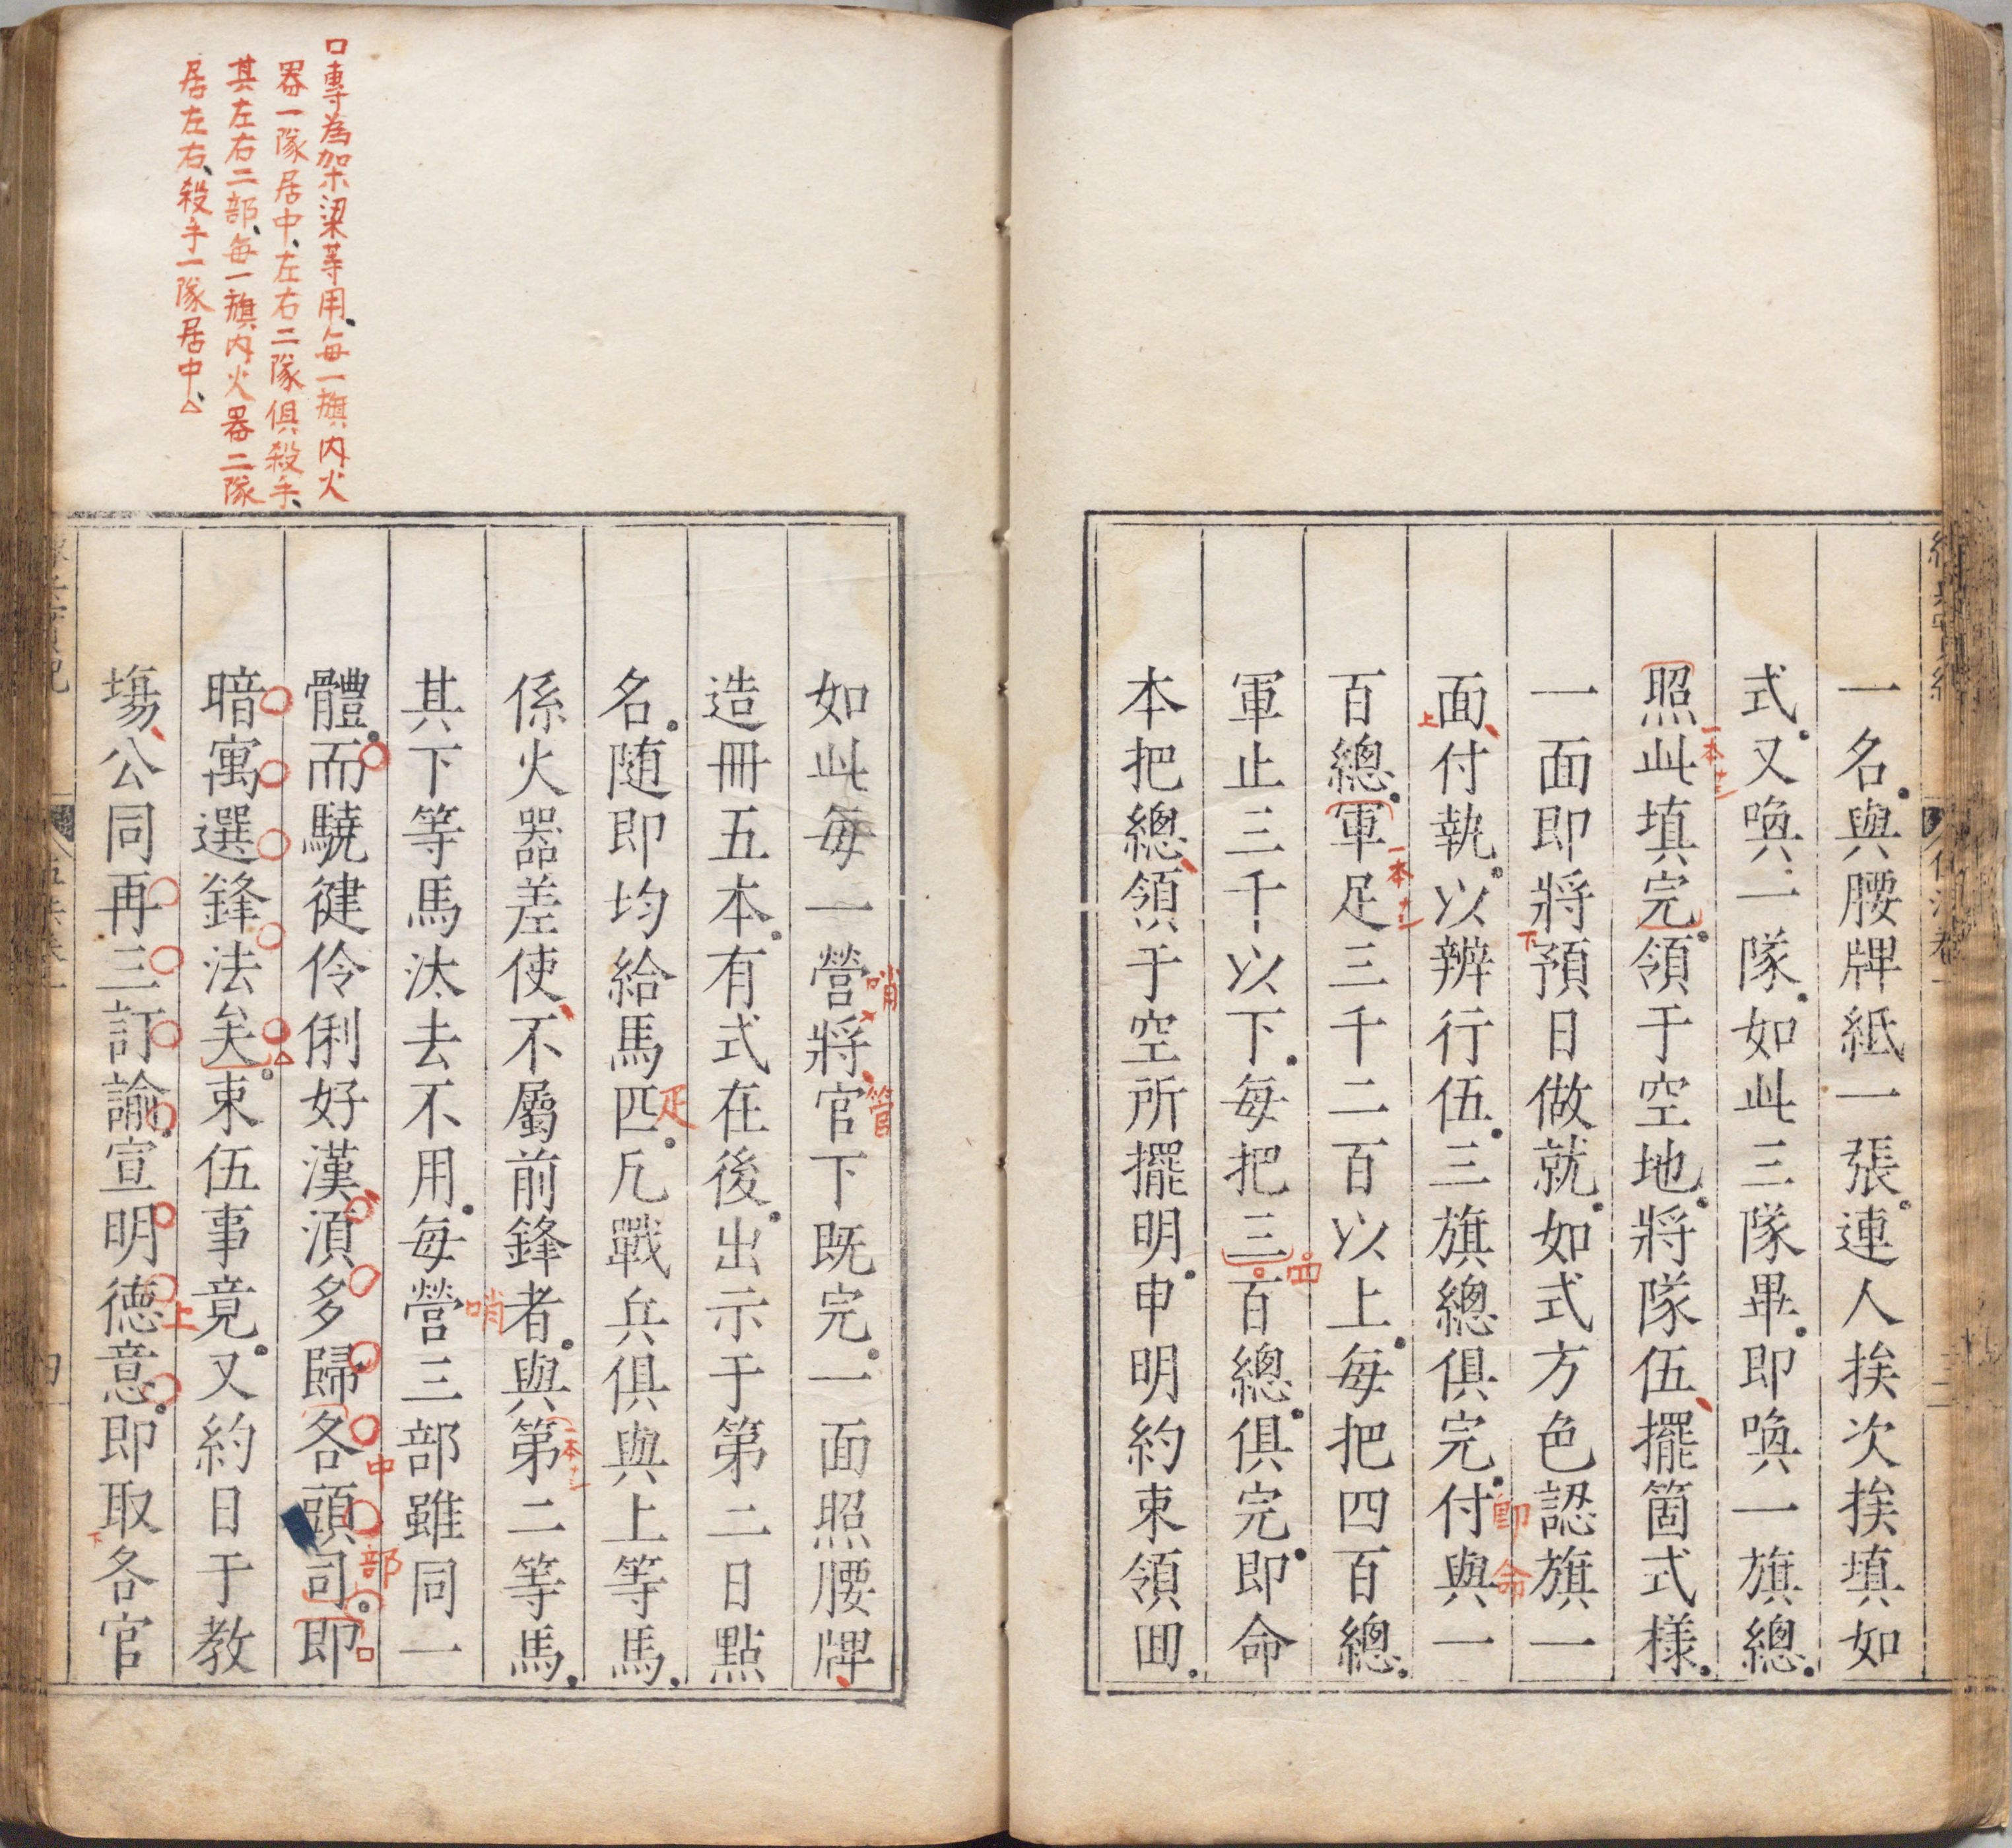 一名與腰牌紙一張連人挨次挨填如
式又喚一隊如此三隊畢即喚一旗總
照此填完領于空地將隊伍擺箇式樣
一本
一面即將預日做就如式方色認旗一
下
面付執以辨行伍三旗總俱完付與一
上
即命
百總軍足三千二百以上每把四百總
一本
軍止三千以下每把三百總俱完即命
四
本把總領于空所擺明申明約束領囬
口專為架梁等用每一旗內火
器一隊居中左右二隊俱殺手
其左右二部每一旗內火器二隊
居左右殺手一隊居中
如此每一營將官下既完一面照腰牌
哨
管
造冊五本有式在後出示于第二日點
名随即均給馬匹凡戰兵俱與上等馬
疋
係火器差使不屬前鋒者與第二等馬
一本
其下等馬汰去不用每營三部雖同一
哨
體而驍健伶俐好漢湏多歸各頭司即
中
部
口
暗寓選鋒法矣束伍事竟又約日于教
塲公同再三訂諭宣明德意即取各官
上
下